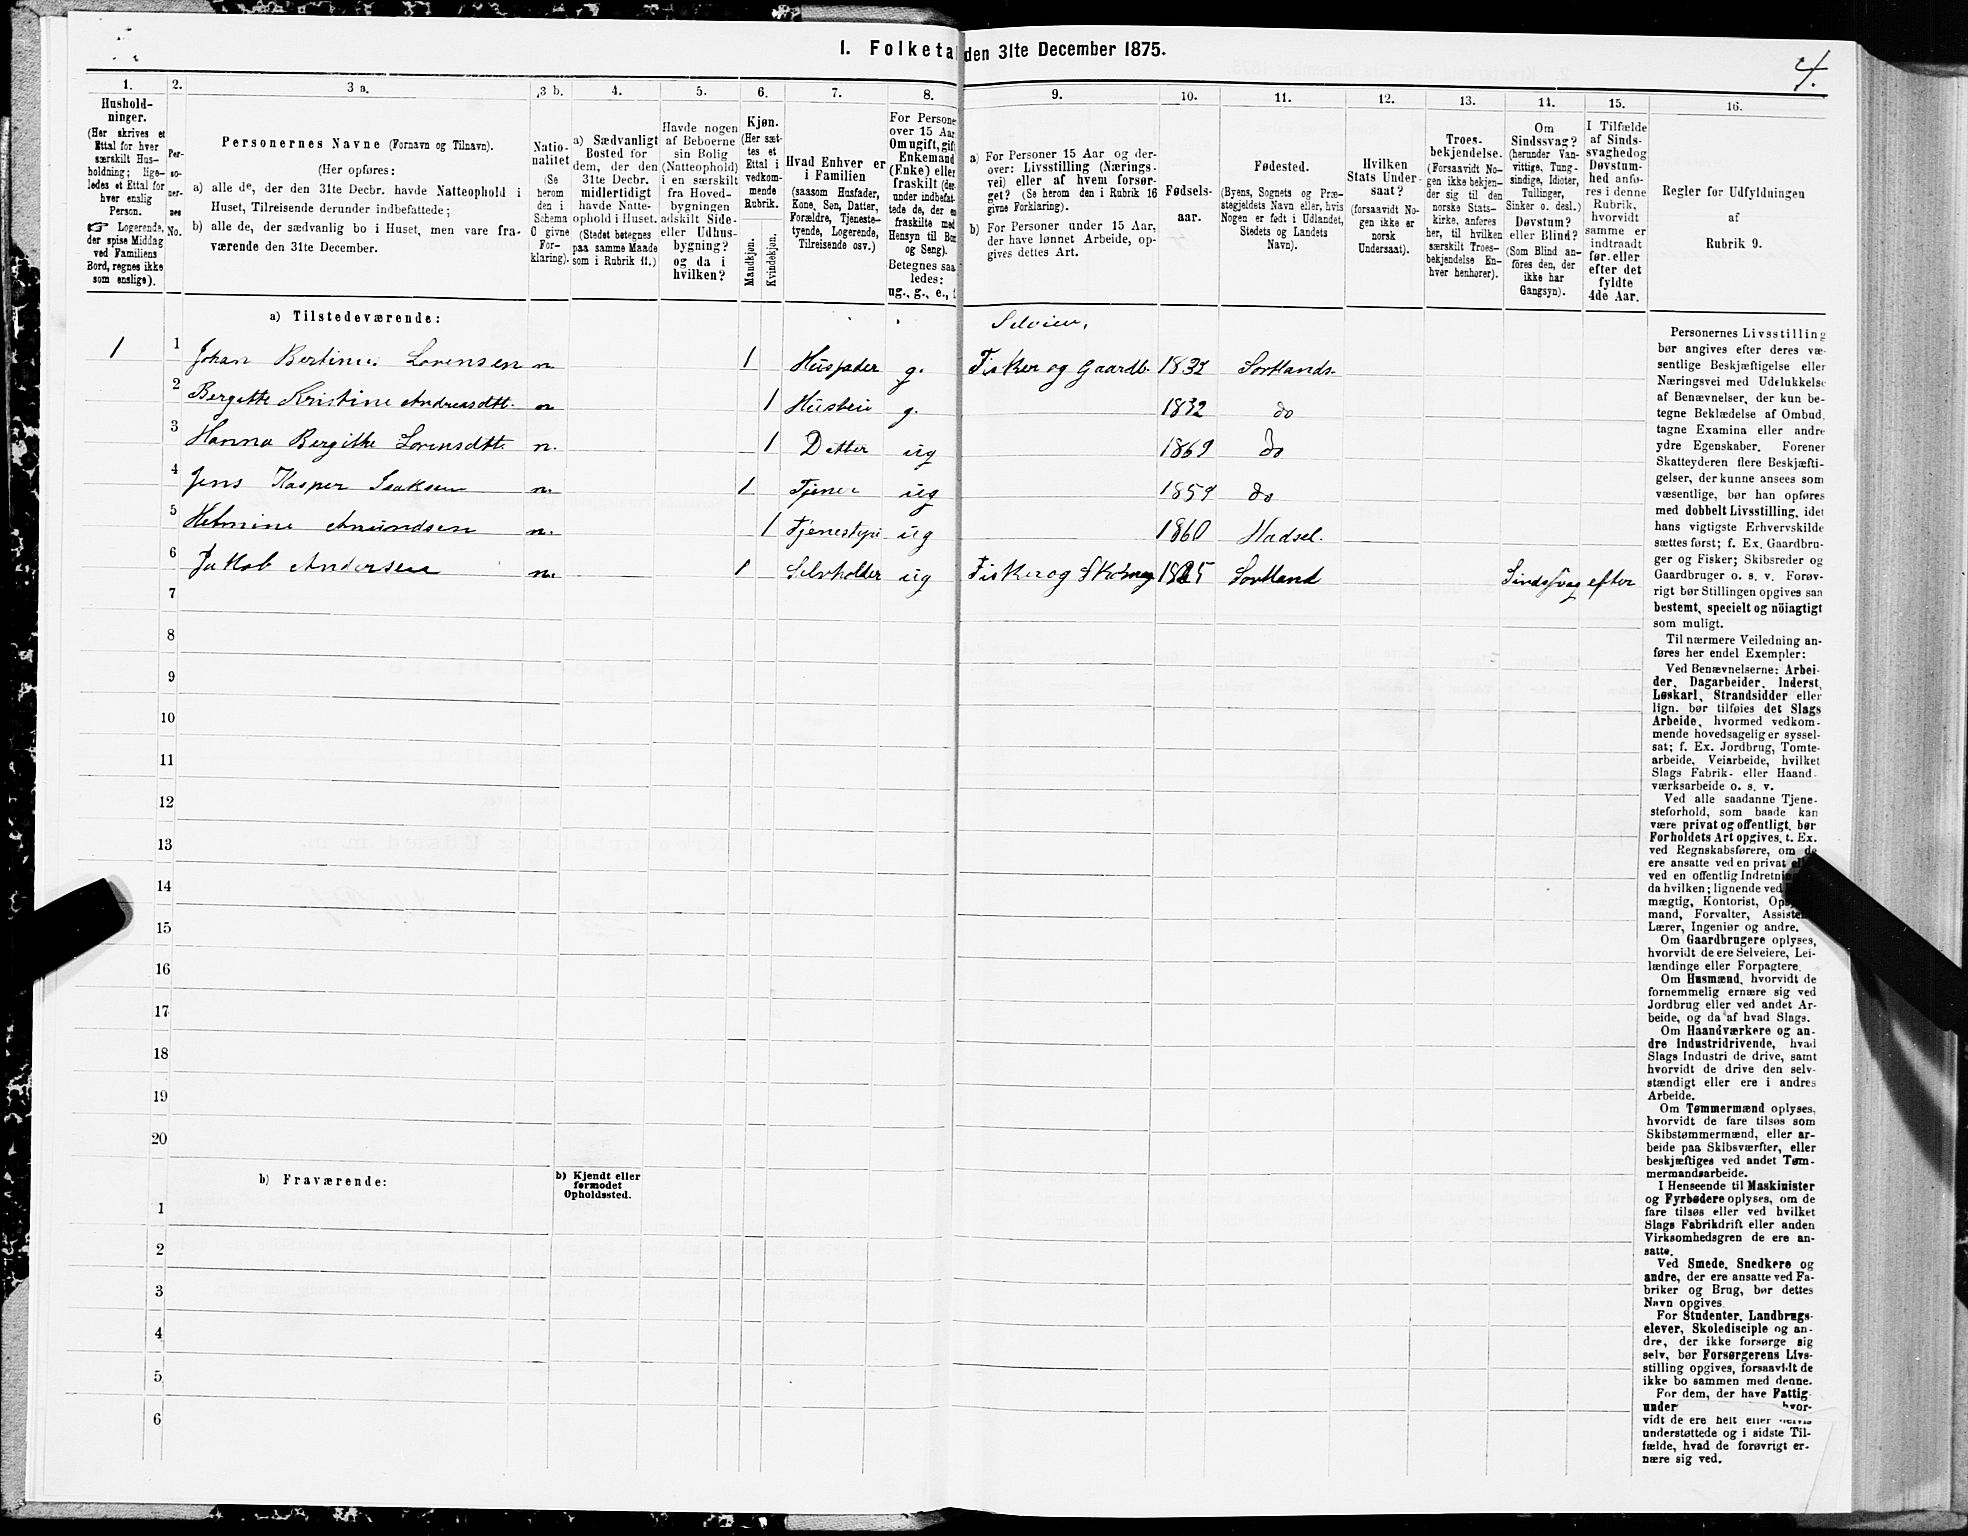 I. Folketal den 31te December 1875.
4.
1. 2. 3 a. 3 b. 4. 5. 6. 7. 8. 9. 10. 11. 12. 13. 14. 15. 16.
Hushold-
ninger.
(Her skrives et
Ettal for hver
særskilt Hus-
holdning; lige-
ledes et Ettal for
hver enslig
Person.
☞ Logerende,
der spise Middag
ved Familiens
Bord, regnes ikke
som enslige).
Per-
so-
ner-
nes
No.
Personernes Navne (Fornavn og Tilnavn).
(Her opføres:
a) alle de, der den 31te Decbr. havde Natteophold i
Huset, Tilreisende derunder indbefattede;
b) alle de, der sædvanlig bo i Huset, men vare fra-
værende den 31te December.
Natio-
nalitet
(Se
herom
den i
Schema
C givne
For-
klaring).
a) Sædvanligt
Bosted for
dem, der den
31te Decbr.
midlertidigt
havde Natte-
ophold i Huset.
(Stedet betegnes
paa samme Maade
som i Rubrik 11.)
Havde nogen
af Beboerne
sin Bolig
(Natteophold)
i en særskilt
fra Hoved-
bygningen
adskilt Side-
eller Udhus-
bygning?
og da i
hvilken?
Kjøn.
(Her sæt-
tes et
Ettal i
vedkom-
mende
Rubrik.
Mandkjøn.
Kvindekjøn.
Hvad Enhver er
i Familien
(saasom Husfader,
Kone, Søn, Datter,
Forældre, Tjeneste-
tyende, Logerende,
Tilreisende osv.)
For Persone
over 15 Aar
Om ugift, gift
Enkemand
(Enke) eller
fraskilt (der-
under indbefat-
tede de, der e
fraskilte med
Hensyn til Bo
og Seng).
Betegnes saa
ledes:
ug., g., e., f
a) For Personer 15 Aar og der-
over: Livsstilling (Nærings-
vei) eller af hvem forsør-
get? (Se herom den i Rubrik 16
givne Forklaring).
b) For Personer under 15 Aar,
der have lønnet Arbeide, op-
gives dettes Art.
Fødsels-
aar.
Fødested.
(Byens, Sognets og Præ-
stegjeldets Navn eller, hvis
Nogen er født i Udlandet,
Stedets og Landets
Navn).
Hvilken
Stats Under-
saat?
(forsaavidt No-
gen ikke er
norsk
Undersaat).
Troes-
bekjendelse.
(Forsaavidt No-
gen ikke bekjen-
der sig til den
norske Stats-
kirke, anføres
her, til hvilken
særskilt Troes-
bekjendelse En-
hver henhører).
Om
Sindssvag?
(herunder Van-
vittige, Tung-
sindige, Idioter,
Tullinger,
Sinker o. desl.)
Døvstum?
eller Blind?
(Som Blind an-
føres den, der
ikke har
Gangsyn).
I Tilfælde
af Sinds-
svaghed og
Døvstum-
hed anfø-
res i denne
Rubrik,
hvorvidt
samme er
indtraadt
før eller
efter det
fyldte
4de Aar.
Regler for Udfyldningen
af
Rubrik 9.
a) Tilstedeværende:
Selveier,
1 1 Johan Bertinus Lorensen n. 1 Husfader g. Fisker og Gaardb. 1832 Sortlands
2 Bergitte Kristine Andreasdtt. n 1 Husteu g. 1832 do
3 Hanna Bergitte Lorensdtt n. 1 Datter ug 1869 do
4 Jens Kasper Isaksen n. 1 Tjener ug 1859 do
5 Helmine Amundsen n. 1 Tjenestepi ug 1860 Hadsel.
6 Jakob Andersen n. 1 Selvholder ug Fisker og Skomag 1825 Sortland Sindssvag efter
7
8
9
10
11
12
13
14
15
16
17
18
19
20
b) Fraværende:
b) Kjendt eller
formodet
Opholdssted.
1
2
3
4
5
6
Personernes Livsstilling
bør angives efter deres væ-
sentlige Beskjæftigelse eller
Næringsvei med Udelukkelse
af Benævnelser, der kun be-
tegne Beklædelse af Ombud,
tagne Examina eller andre
ydre Egenskaber. Forener
Skatteyderen flere Beskjæfti-
gelser, der kunne ansees som
væsentlige, bør han opføres
med dobbelt Livsstilling, idet
hans vigtigste Erhvervskilde
sættes først; f. Ex. Gaardbru-
ger og Fisker; Skibsreder og
Gaardbruger o. s. v. Forøv-
rigt bør Stillingen opgives saa
bestemt, specielt og nöiagtigt
som muligt.
Til nærmere Veiledning an-
føres her endel Exempler:
Ved Benævnelserne: Arbei-
der, Dagarbeider, Inderst,
Løskarl, Strandsidder eller
lign. bør tilføies det Slags
Arbeide, hvormed vedkom-
mende hovedsagelig er syssel-
sat; f. Ex. Jordbrug, Tomte-
arbeide, Veiarbeide, hvilket
Slags Fabrik- eller Haand-
værksarbeide o. s. v.
Ved alle saadanne Tjene-
steforhold, som baade kan
være privat og offentligt, bør
Forholdets Art opgives, t. Ex.
ved Regnskabsførere, om de
ere ansatte ved en privat
ved en offentlig Indretnin
da hvilken; lignende ved
mægtig, Kontorist, Op
mand, Forvalter, Assisten
Lærer, Ingeniør og andre.
Om Gaardbrugere oplyses,
hvorvidt de ere Selveiere, Lei-
lændinge eller Forpagtere.
Om Husmænd, hvorvidt de
fornemmelig ernære sig ved
Jordbrug eller ved andet Ar-
beide, og da af hvad Slags.
Om Haandværkere og an-
dre Industridrivende, hvad
Slags Industri de drive, samt
hvorvidt de drive den selv-
stændigt eller ere i andres
Arbeide.
Om Tømmermænd oplyses,
hvorvidt de fare tilsøs som
Skibstømmermænd, eller ar-
beide paa Skibsværfter, eller
beskjæftiges ved andet Tøm-
mermandsarbeide.
I Henseende til Maskinister
og Fyrbødere oplyses, om de
fare tilsøs eller ved hvilket
Slags Fabrikdrift eller anden
Virksomhedsgren de ere an-
satte.
Ved Smede, Snedkere og
andre, der ere ansatte ved Fa-
briker og Brug, bør dettes
Navn opgives.
For Studenter, Landbrugs-
elever, Skoledisciple og an-
dre, der ikke forsørge sig
selv, bør Forsørgerens Livs-
stilling opgives, forsaavidt de
ikke bo sammen med denne.
For dem, der have Fattig-
under hvor-
vidt de ere helt eller delvis
understøttede og i sidste Til-
fælde, hvad de forøvrigt er-
nære sig ved.